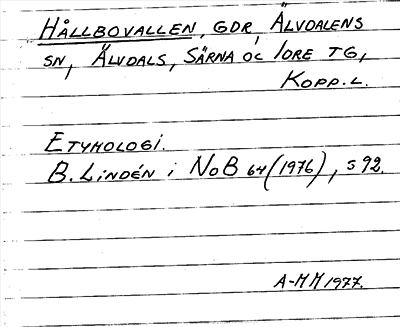 HÅLLBOVALLEN, GDR, ÄLVDALENS
SN, ÄLVDALS, SÄRNA OC IDRE TG,
KOPP. L.
ETYMOLOGI.
B. LINDÉN i NoB 64 (1976), s 92.
A-MM 1977.